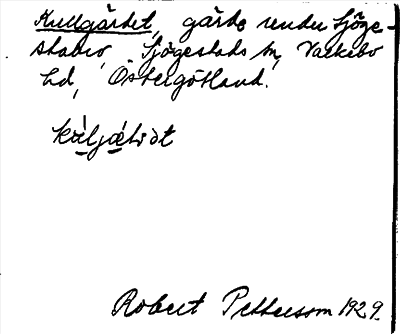 Kullgärdet, gärde under Sjöge-
stad, Sjögestads sn, Valkebo
hd, Östergötland.
Robert Pettersson 1929.